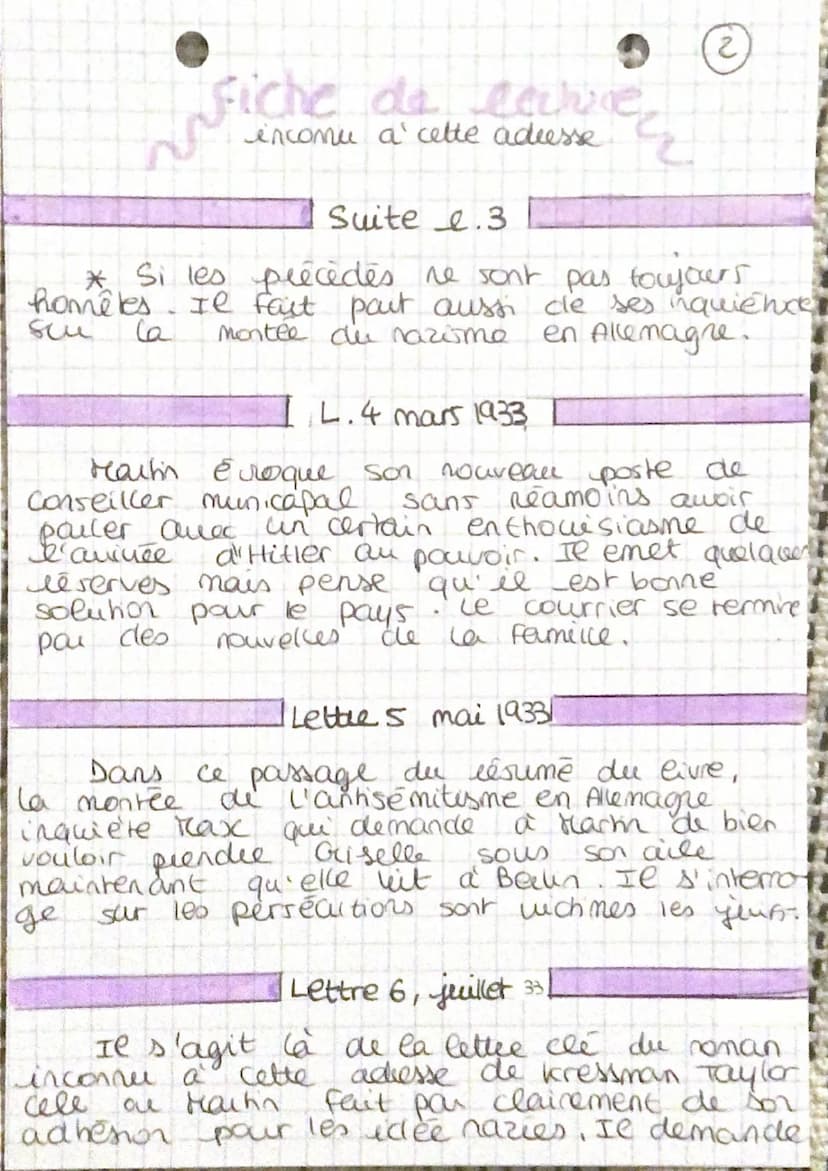 2
fiche de lecture
inconnu à cette adresse
Suite l.3
* Si les précédés ne sont pas toujours
honnêtes. Il fait part aussi de ses inquiétude
sur la montée du nazisme en Allemagne.
L.4 mars 1933
Martin évoque son nouveau poste de
conseiller municapal sans néamoins avoir
parler avec un certain enthouisiasme de
l'arrivée d'Hitler au pouvoir. Il emet quelques
réserves mais pense qu'il est bonne
solution pour le pays. Le courrier se termine
par des nouvelles de la famille.
Lettre 5 mai 1933
Dans ce passage du résumé du livre,
la montée de l'antisémitisme en Allemagne
inquiète Max qui demande à Martin de bien
vouloir prendre Griselle sous son aile
maintenant qu'elle vit à Berlin. Il s'interro-
ge sur les persécutions sont victimes les juifs.
Lettre 6, juillet 33
Il s'agit là de la lettre clé du roman
inconnu à cette adresse de Kressman Taylor
cele ou Martin fait par clairement de son
adhésion pour les idée nazies. Il demande